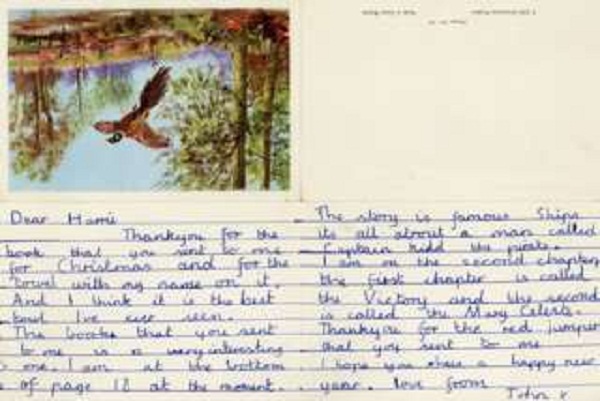 Dear Mamie
Thankyou for the
book that you sent to me
for Christmas and for the
towel with my name on it.
And I think it is the best
towel I've ever seen.
The books that you sent
to me is a very interesting
to one. I am at the bottom
of page 18 at the moment.
The story is famous Ships
its all about a man called
Captain Kidd the pirate.
I am on the second chapter,
the first chapter is called
the Victory and the second
is called the Mary Celeste.
Thankyou for the red jumper
that you sent to me
I hope you have a happy new
year. love from
John x